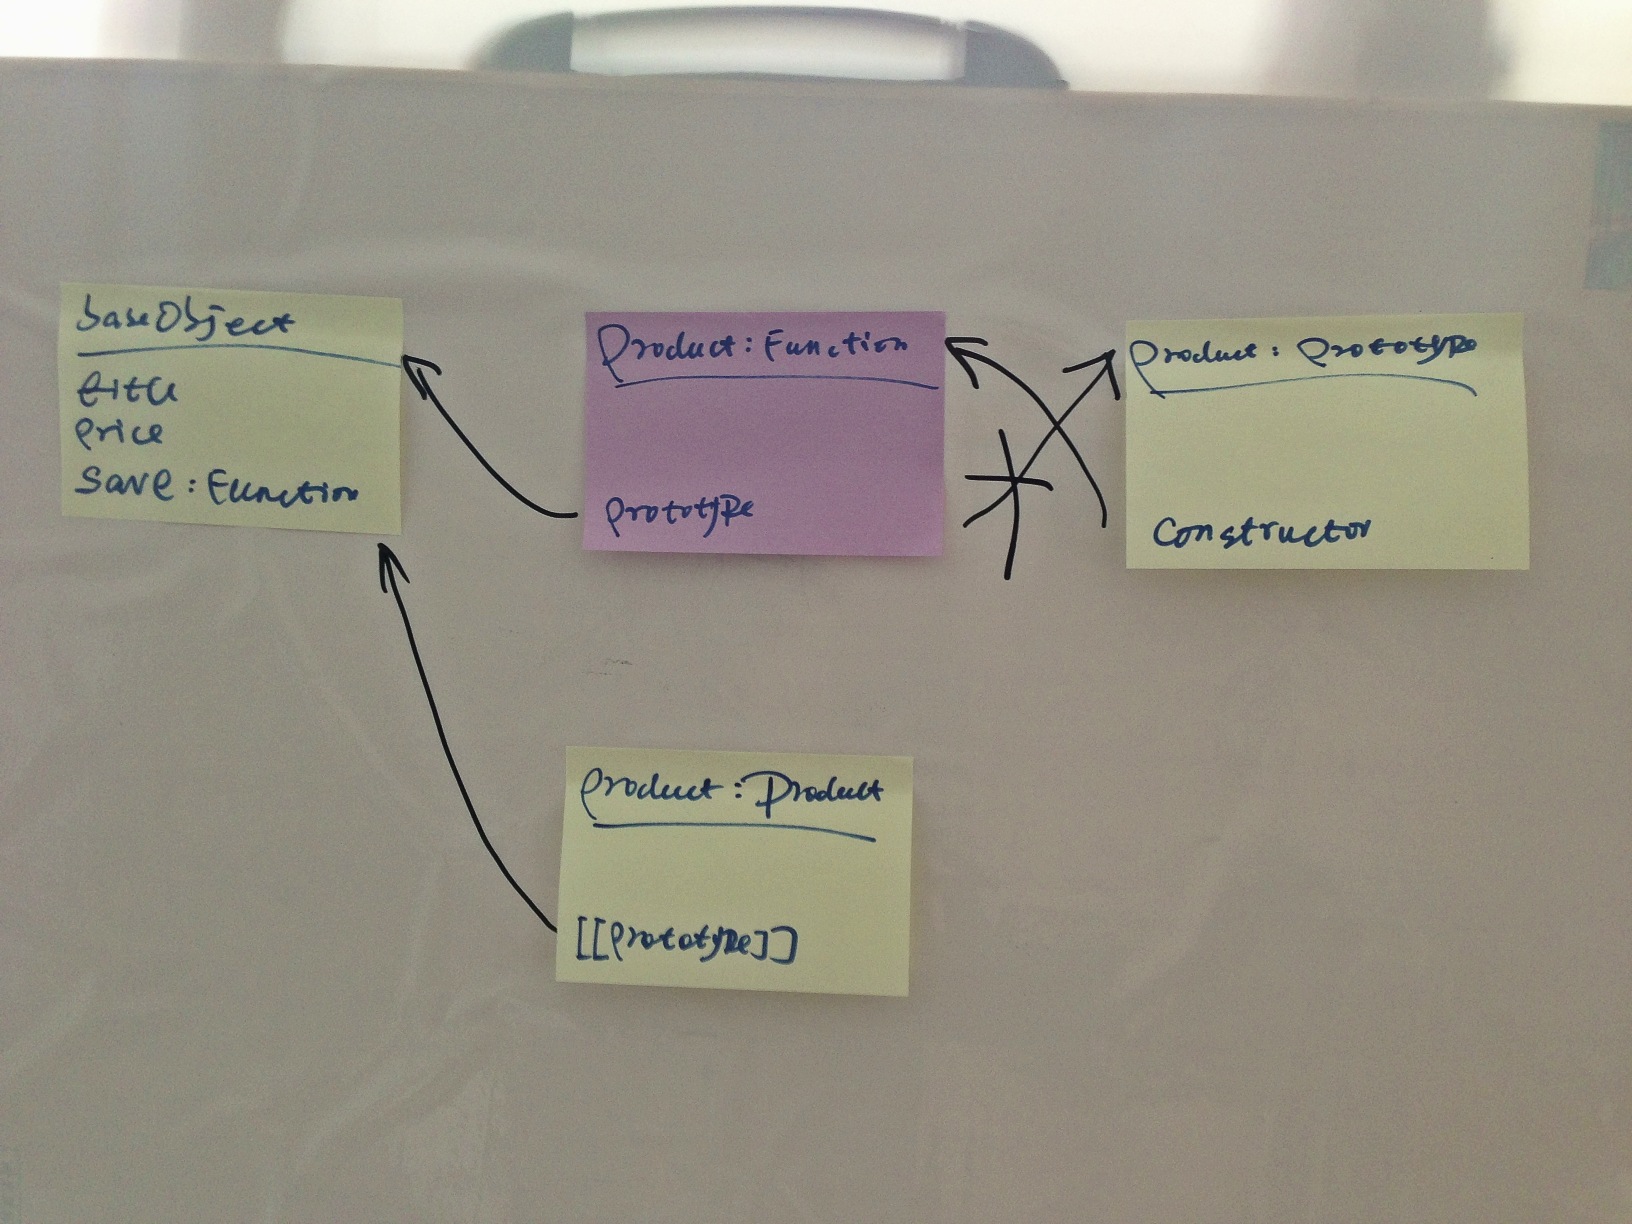 baseObject
title
price
save : Function
Product : Function
prototype
product : prototype
Constructor
product : Product
[[prototype]]